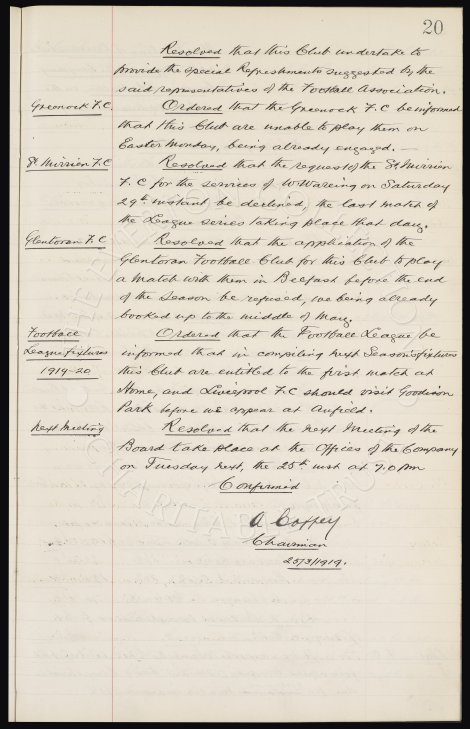 20
Resolved that this Club undertake to
provide the special Refreshments suggested by the
said representatives of the Football Association.
Greenock F.C Ordered that the Greenock F.C be informed
that this Club are unable to play them on
Easter Monday, being already engaged. —
St Mirrien F.C Resolved that the request of the St Mirrien
F.C for the services of W Wareing on Saturday
29th instant be declined, the last match of
the League series taking place that day.
Glentoran F.C Resolved that the application of the
Glentoran Football Club for this Club to play
a match with them in Belfast before the end
of the season be refused, we being already
booked up to the middle of May.
Football Ordered that the Football League be
League fixtures informed that in compiling next Season's fixtures
1919-20 this Club are entitled to the first match at
Home, and Liverpool F.C should visit Goodison
Park before we appear at Anfield.
Next Meeting Resolved that the next Meeting of the
Board take place at the Offices of the Company
on Tuesday next, the 25th inst at 7.0 pm
Confirmed
A Coffey
Chairman
25/3/1919.